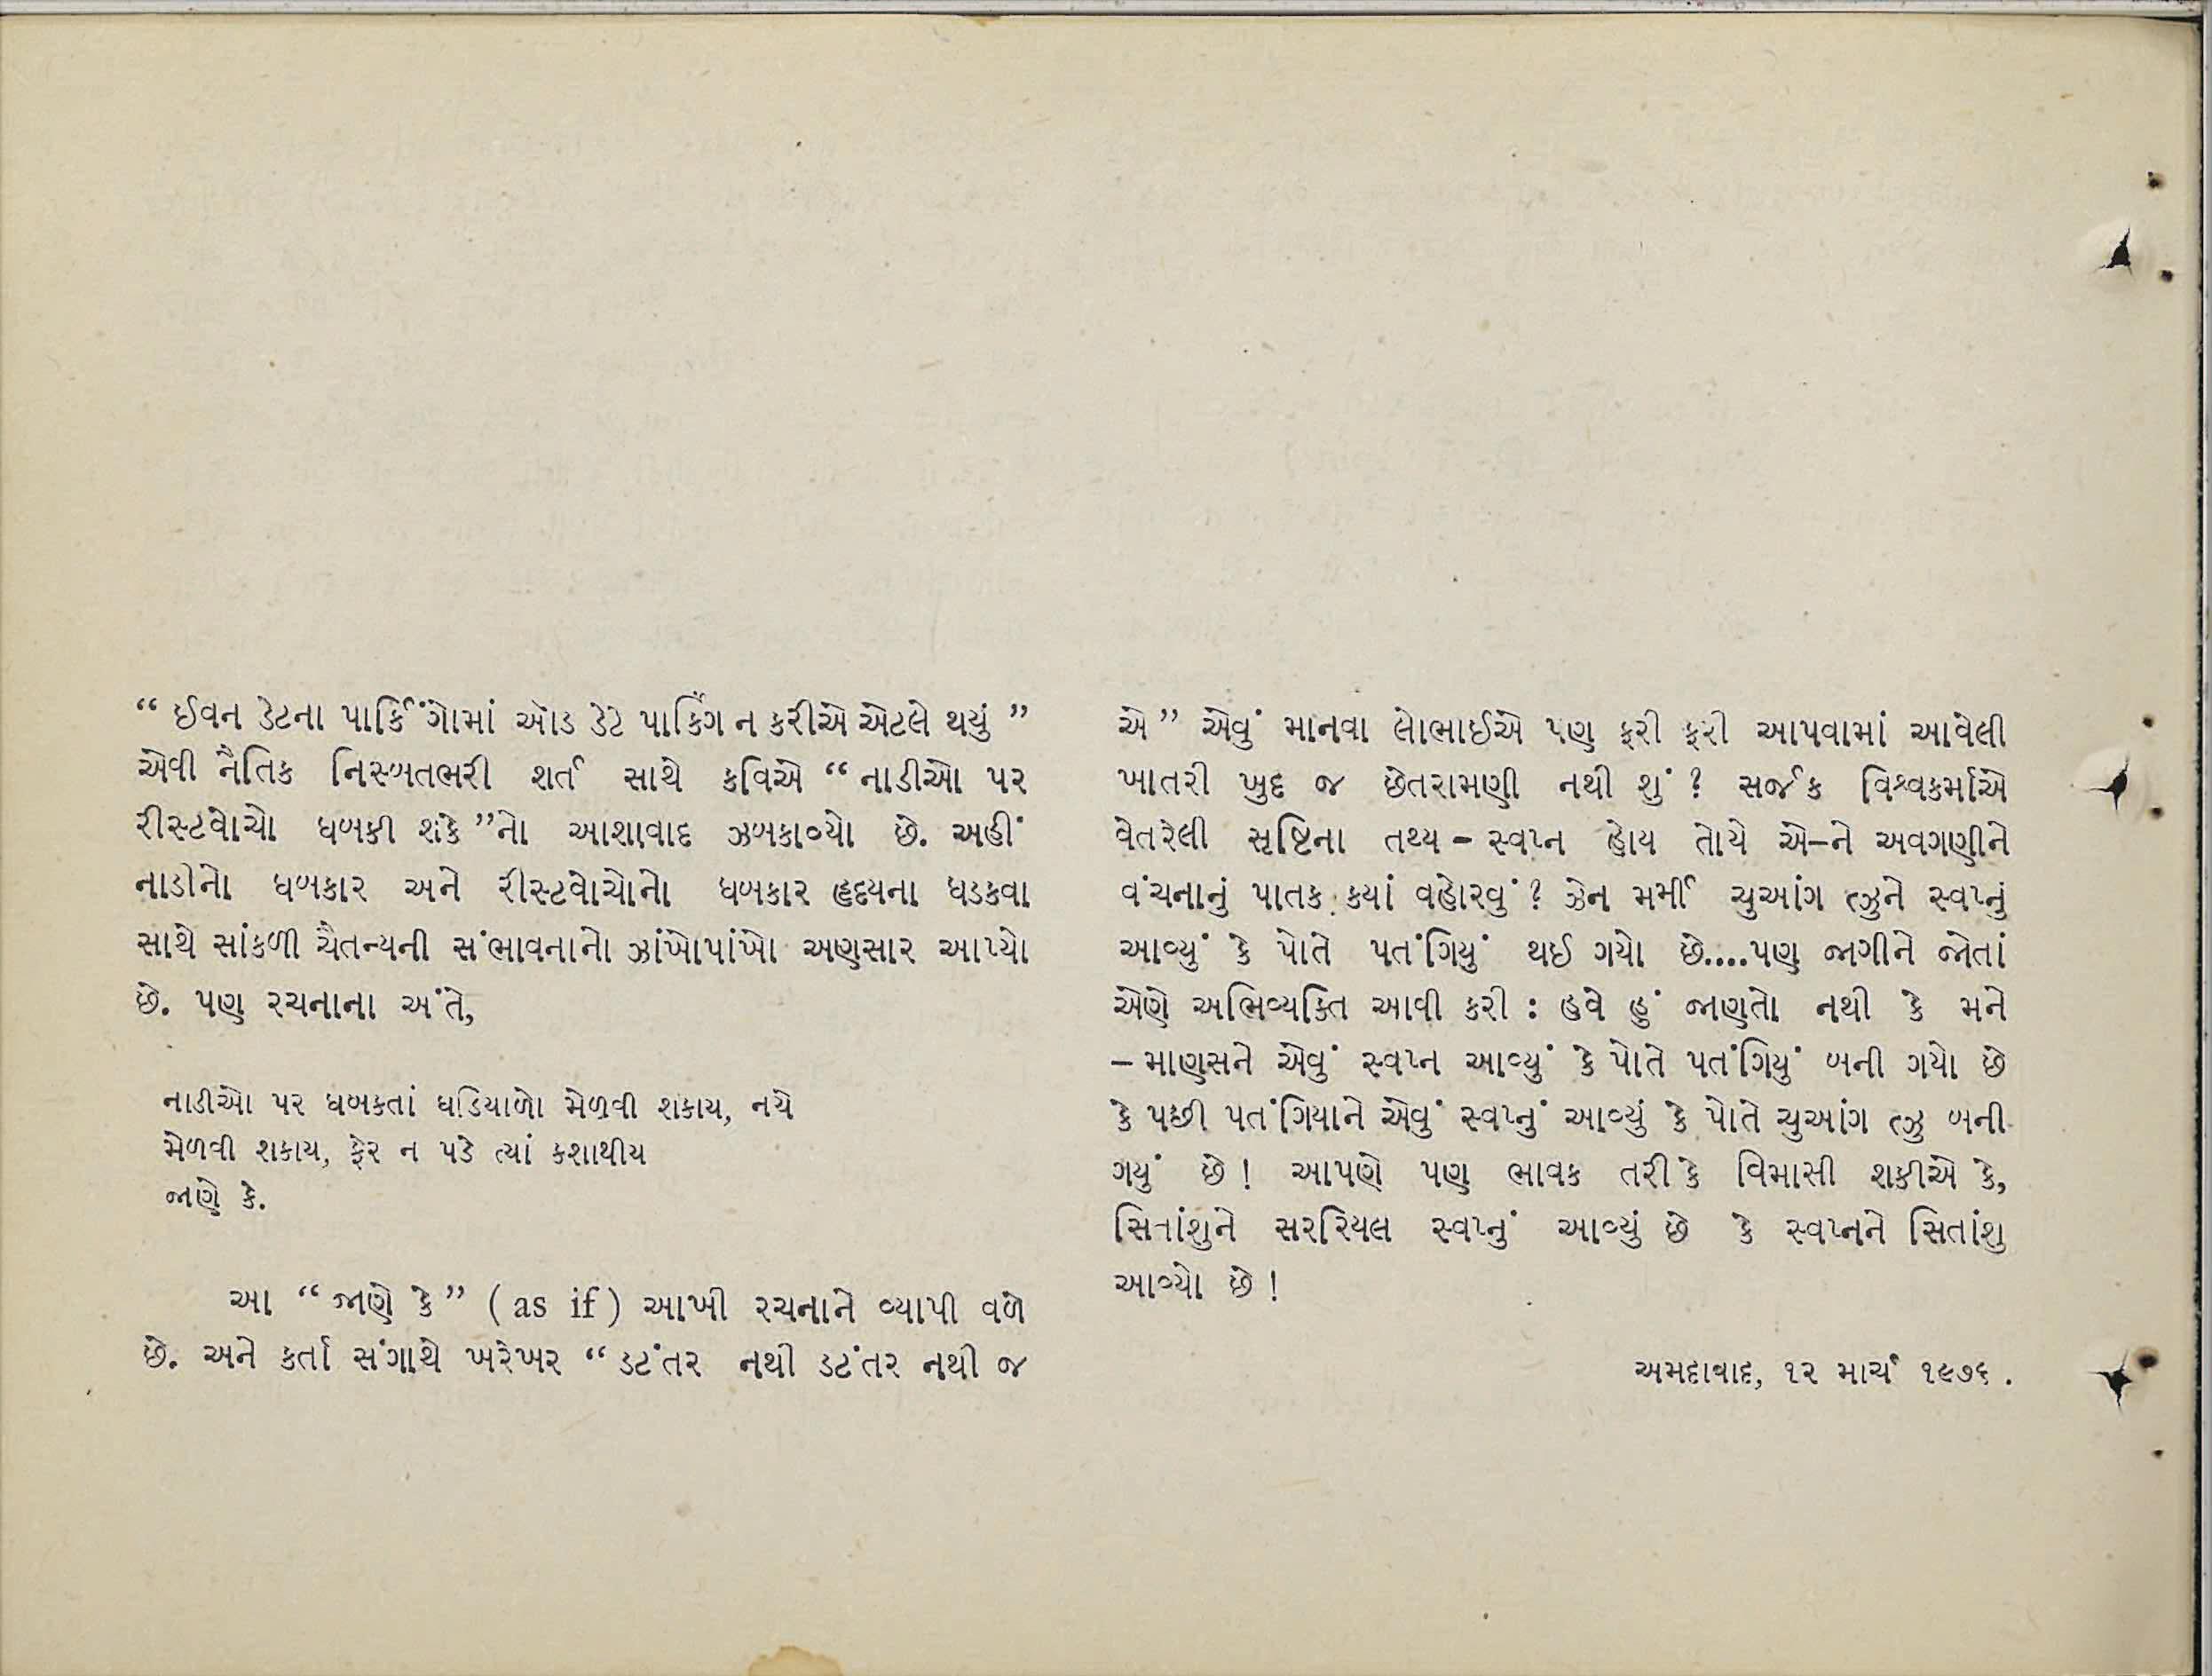 “ ઈવન ડેટના પાર્કિંગોમાં ઓડ ડેટે પાર્કિંગ ન કરીએ એટલે થયું ”
એવી નૈતિક નિસ્બતભરી શર્ત સાથે કવિએ “ નાડીઓ પર
રીસ્ટવોચો ધબકી શકે ”નો આશાવાદ ઝબકાવ્યો છે. અહીં
નાડીનો ધબકાર અને રીસ્ટવોચોનો ધબકાર હૃદયના ધડકવા
સાથે સાંકળી ચૈતન્યની સંભાવનાનો ઝાંખોપાંખો અણસાર આપ્યો
છે. પણ રચનાના અંતે,
નાડીઓ પર ધબકતાં ઘડિયાળો મેળવી શકાય, નયે
મેળવી શકાય, ફેર ન પડે ત્યાં કશાથીય
જાણે કે.
આ “ જાણે કે ” ( as if ) આખી રચનાને વ્યાપી વળે
છે. અને કર્તા સંગાથે ખરેખર “ ડટંતર નથી ડટંતર નથી જ
એ ” એવું માનવા લોભાઈએ પણ ફરી ફરી આપવામાં આવેલી
ખાતરી ખુદ જ છેતરામણી નથી શું ? સર્જક વિશ્વકર્માએ
વેતરેલી સૃષ્ટિના તથ્ય - સ્વપ્ન હોય તોયે એ–ને અવગણીને
વંચનાનું પાતક કયાં વહોરવું ? ઝેન મર્મી ચુઆંગ ત્ઝુને સ્વપ્નું
આવ્યું કે પોતે પતંગિયું થઈ ગયો છે....પણ જાગીને જોતાં
એણે અભિવ્યક્તિ આવી કરી : હવે હું જાણતો નથી કે મને
– માણસને એવું સ્વપ્ન આવ્યું કે પોતે પતંગિયું બની ગયો છે
કે પછી પતંગિયાને એવું સ્વપ્નું આવ્યું કે પોતે ચુઆંગ ત્ઝુ બની
ગયું છે ! આપણે પણ ભાવક તરીકે વિમાસી શકીએ કે,
સિતાંશુને સરરિયલ સ્વપ્નું આવ્યું છે કે સ્વપ્નને સિતાંશુ
આવ્યો છે !
અમદાવાદ, ૧૨ માર્ચ ૧૯૭૬ .